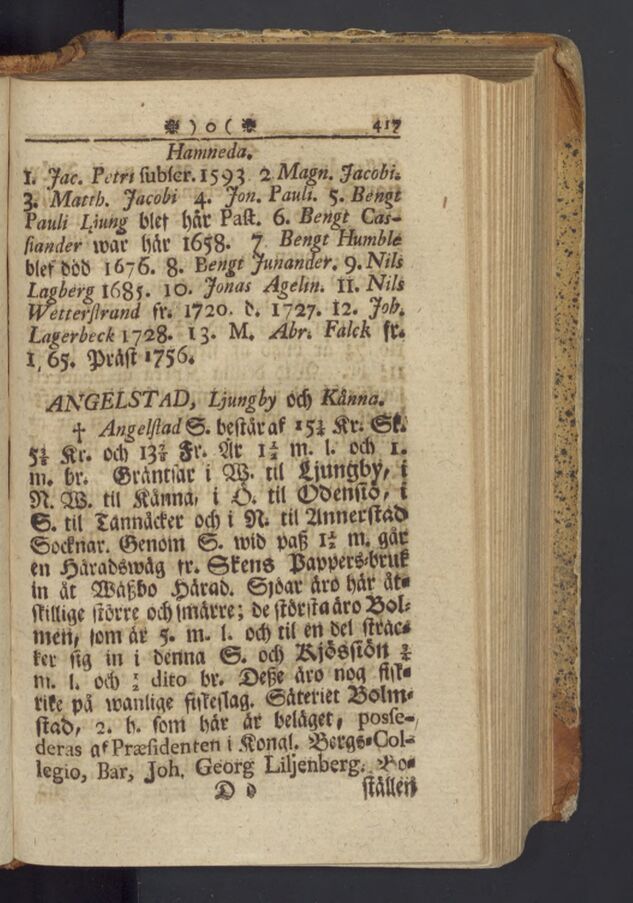 ❋ ) o ( ❋ 417
Hamneda.
1. Jac. Petri subscr. 1593 2 Magn. Jacobi.
3. Matth. Jacobi 4. Jon. Pauli. 5. Bengt
Pauli Ljung blef här Past. 6. Bengt Cas-
siander war här 1658. 7 Bengt Humble
blef död 1676. 8. Bengt Junander. 9. Nils
Lagberg 1685. 10. Jonas Agelin. 11. Nils
Wetterstrand fr. 1720. d. 1727. 12. Joh.
Lagerbeck 1728. 13. M. Abr. Falck fr.
1, 65. Präst 1756.
ANGELSTAD, Ljungby och Kånna.
† Angelstad S. består af 15¾ Kr. Sk.
Kr. och Fr. Är 1½ m. l. och 1.
m. br. Gräntsar i W. til Ljungby, i
N. W. til Kånna, i Ö. til Odensiö, i
S. til Tannåcker och i N. til Annerstad
Socknar. Genom S. wid paß 1½ m. går
en Häradswäg fr. Skens Pappers-bruk
in åt Wäßbo Härad. Sjöar äro här åt-
skillige större och smärre; de största äro Bol-
men, som är 5. m. l. och til en del sträc-
ker sig in i denna S. och Kjössiön
m. l. och ½ dito br. Deße äro nog fisk-
rike på wanlige fiskeslag. Säteriet Bolm-
stad, 2. h. som här är beläget, posse-
deras af Præsidenten i Kongl. Bergs-Col-
legio, Bar, Joh. Georg Liljenberg. Bo-
D d ställen